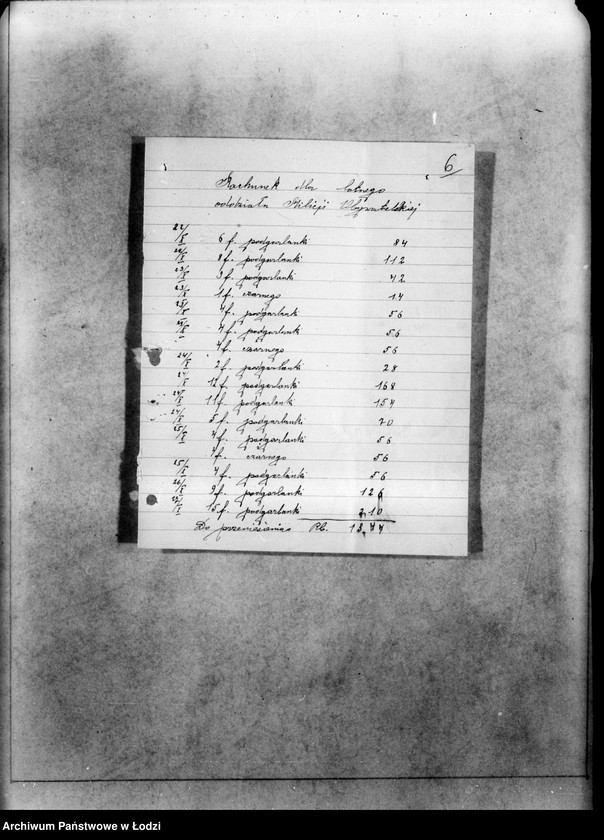 6
Rachunek dla lotnego
oddziału Milicji Obywatelskiej
22/I 6 f. podgarlanki 84
22/I 8 f. podgarlanki 112
23/I 3 f. podgarlanki 42
23/I 1 f. czarnego 14
4 f. podgarlanki 56
4 f. podgarlanki 56
4 f. czarnego 56
24/I 2 f. podgarlanki 28
24/I 12 f. podgarlanki 168
24/I 11 f. podgarlanki 154
24/I 5 f. podgarlanki 70
25/I 4 f. podgarlanki 56
4 f. czarnego 56
25/I 4 f. podgarlanki 56
26/I 9 f. podgarlanki 126
15 f. podgarlanki 2,10
Do przeniesienia Rb. 13,44
Archiwum Państwowe w Łodzi